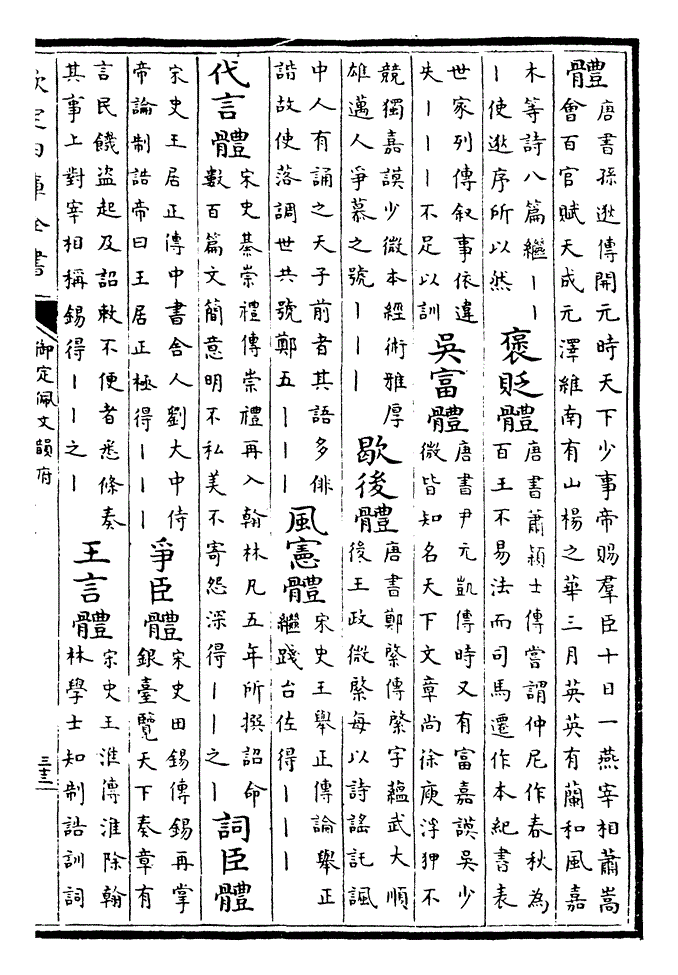 體 唐書孫逖傳開元時天下少事帝賜羣臣十日一燕宰相蕭嵩
會百官賦天成元澤維南有山楊之華三月英英有蘭和風嘉
木等詩八篇繼丨丨
丨使逖序所以然
褒貶體 唐書蕭穎士傳嘗謂仲尼作春秋為
百王不易法而司馬遷作本紀書表
世家列傳叙事依違
失丨丨丨不足以訓
吳富體 唐書尹元凱傳時又有富嘉謨吳少
微皆知名天下文章尚徐庾浮狎不
競獨嘉謨少微本經術雅厚
雄邁人爭慕之號丨丨丨
歇後體 唐書鄭綮傳綮字蘊武大順
後王政微綮每以詩謠託諷
中人有誦之天子前者其語多俳
諧故使落調世共號鄭五丨丨丨
風憲體 宋史王舉正傳論舉正
繼踐台佐得丨丨丨
代言體 宋史綦崇禮傳崇禮再入翰林凡五年所撰詔命
數百篇文簡意明不私美不寄怨深得丨丨之丨
詞臣體
宋史王居正傳中書舍人劉大中侍
帝論制誥帝曰王居正極得丨丨丨
爭臣體 宋史田錫傳錫再掌
銀臺覽天下奏章有
言民饑盜起及詔敕不便者悉條奏
其事上對宰相稱錫得丨丨之丨
王言體 宋史王淮傳淮除翰
林學士知制誥訓詞
欽定四庫全書
御定佩文韻府